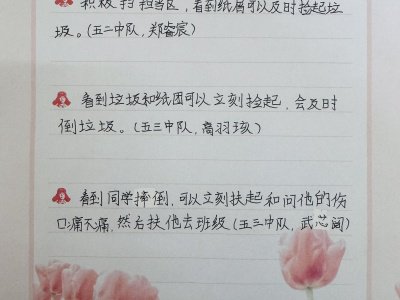 积极扫担当区,看到纸屑可以及时捡起垃
圾。(五二中队,郑睿宸)
看到垃圾和纸团可以立刻捡起,会及时
倒垃圾。(五三中队,高羽琰)
看到同学摔倒,可以立刻扶起和问他的伤
口痛不痛,然后扶他去班级(五三中队,武芯阔)